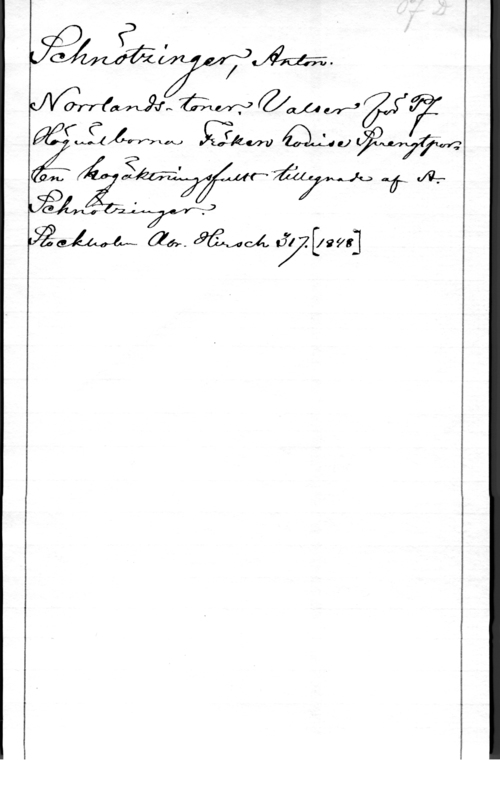 Schnötzinger, Anton.
Norrlands-toner. Valser för Pf
Högvälborna Fröken Louise Sprengtpor-
ten högaktningsfullt tillegnade af A.
Schnötzinger.
Stockholm Abr. Hirsch 317. [1848]